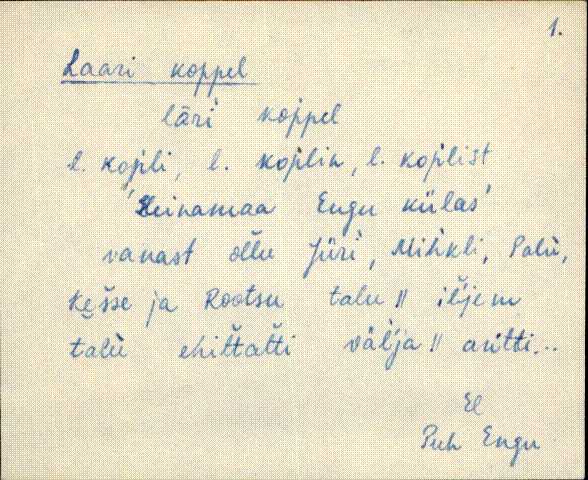 1.
Laari koppel
lāri koppel
l. kopli, l. koplin, l. koplist
'Heinamaa Engu külas'
vanast ollu Jüri, Mihkli, Palu,
Kesse ja Rootsu talu || iljem
talu ehittatti välja || antti...
El
Puh Engu